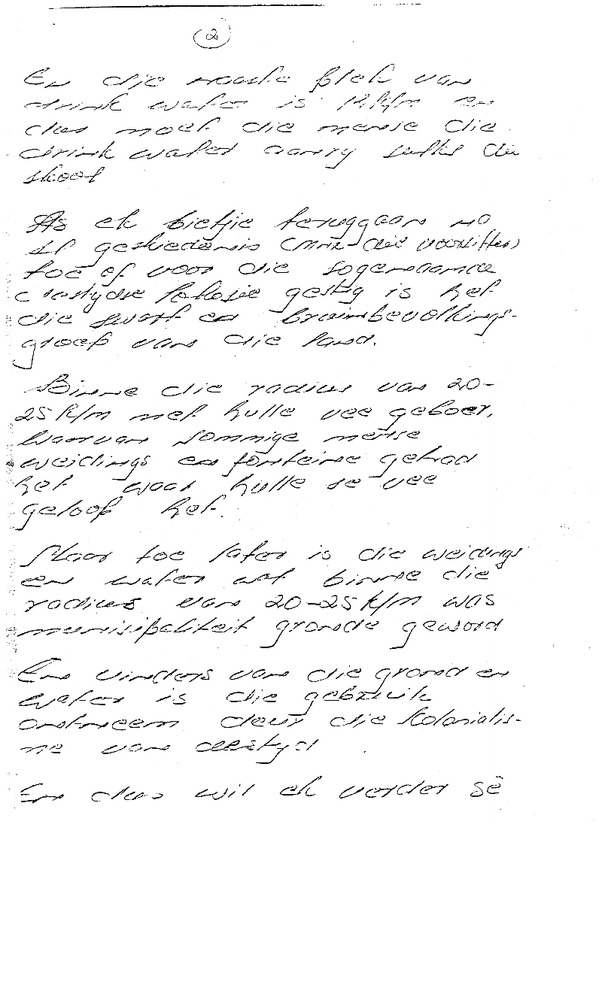 2
En die naaste plek van
drink water is 12 k/m en
dus moet die mense die
drink water aanry selfs die
skool
As ek bietjie teruggaan na
geskiedenis (Mnr die voorsitter)
toe of voor die sogenaamde
destydse lokasie gestig is het
die swart en bruinbevolkings-
groep van die land.
Binne die radius van 20-
25 k/m met hulle vee geboer.
Waarvan sommige mense
weidings en fonteine gehad
het waar hulle se vee
geloop het.
Maar toe later is die weidings
en water wat binne die
radius van 20-25 k/m was
munisipaliteit gronde geword
En vinders van die grond en
water is die gebruik
ontneem deur die kolonialis-
me van destyd
En dus wil ek verder sê